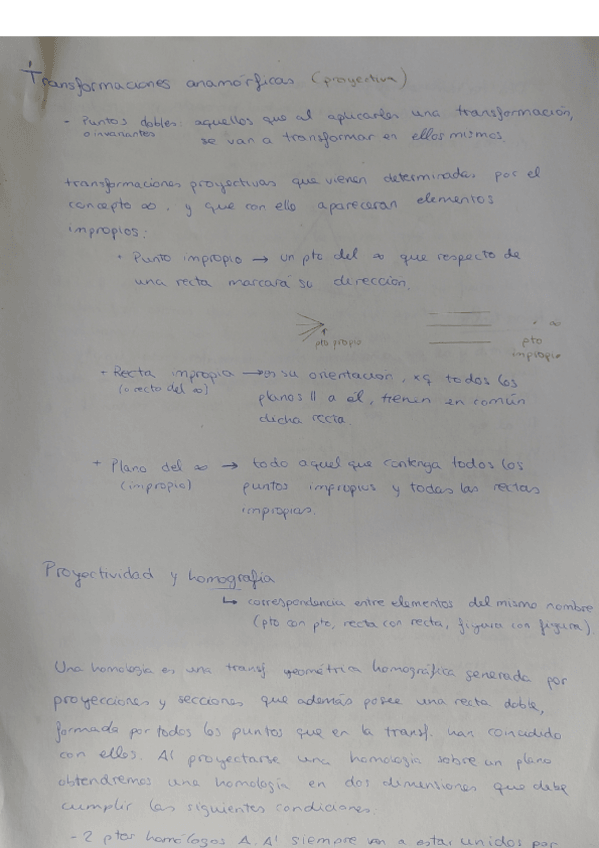 Transformaciones anamórficas (proyectiva)
- Puntos dobles: aquellos que al aplicarles una transformación,
o invariantes se van a transformar en ellos mismos.
transformaciones proyectivas que vienen determinadas por el
concepto ∞, y que con ello apareceran elementos
impropios:
• Punto impropio → un pto del ∞ que respecto de
una recta marcará su dirección.
pto propio
∞
pto
impropio
- Recta impropia → es su orientación, xq todos los
(o recta del ∞) planos || a él, tienen en común
dicha recta.
+ Plano del ∞ → todo aquel que contenga todos los
(impropio) puntos impropios y todas las rectas
impropias.
Proyectividad y homografía
↳ correspondencia entre elementos del mismo nombre
(pto con pto, recta con recta, figura con figura).
Una homología es una transf. geométrica homográfica generada por
proyecciones y secciones que además posee una recta doble,
formada por todos los puntos que en la transf. han coincidido
con ellos. Al proyectarse una homología sobre un plano
obtendremos una homología en dos dimensiones que debe
cumplir las siguientes condiciones.
- 2 ptos homólogos A, A' siempre van a estar unidos por